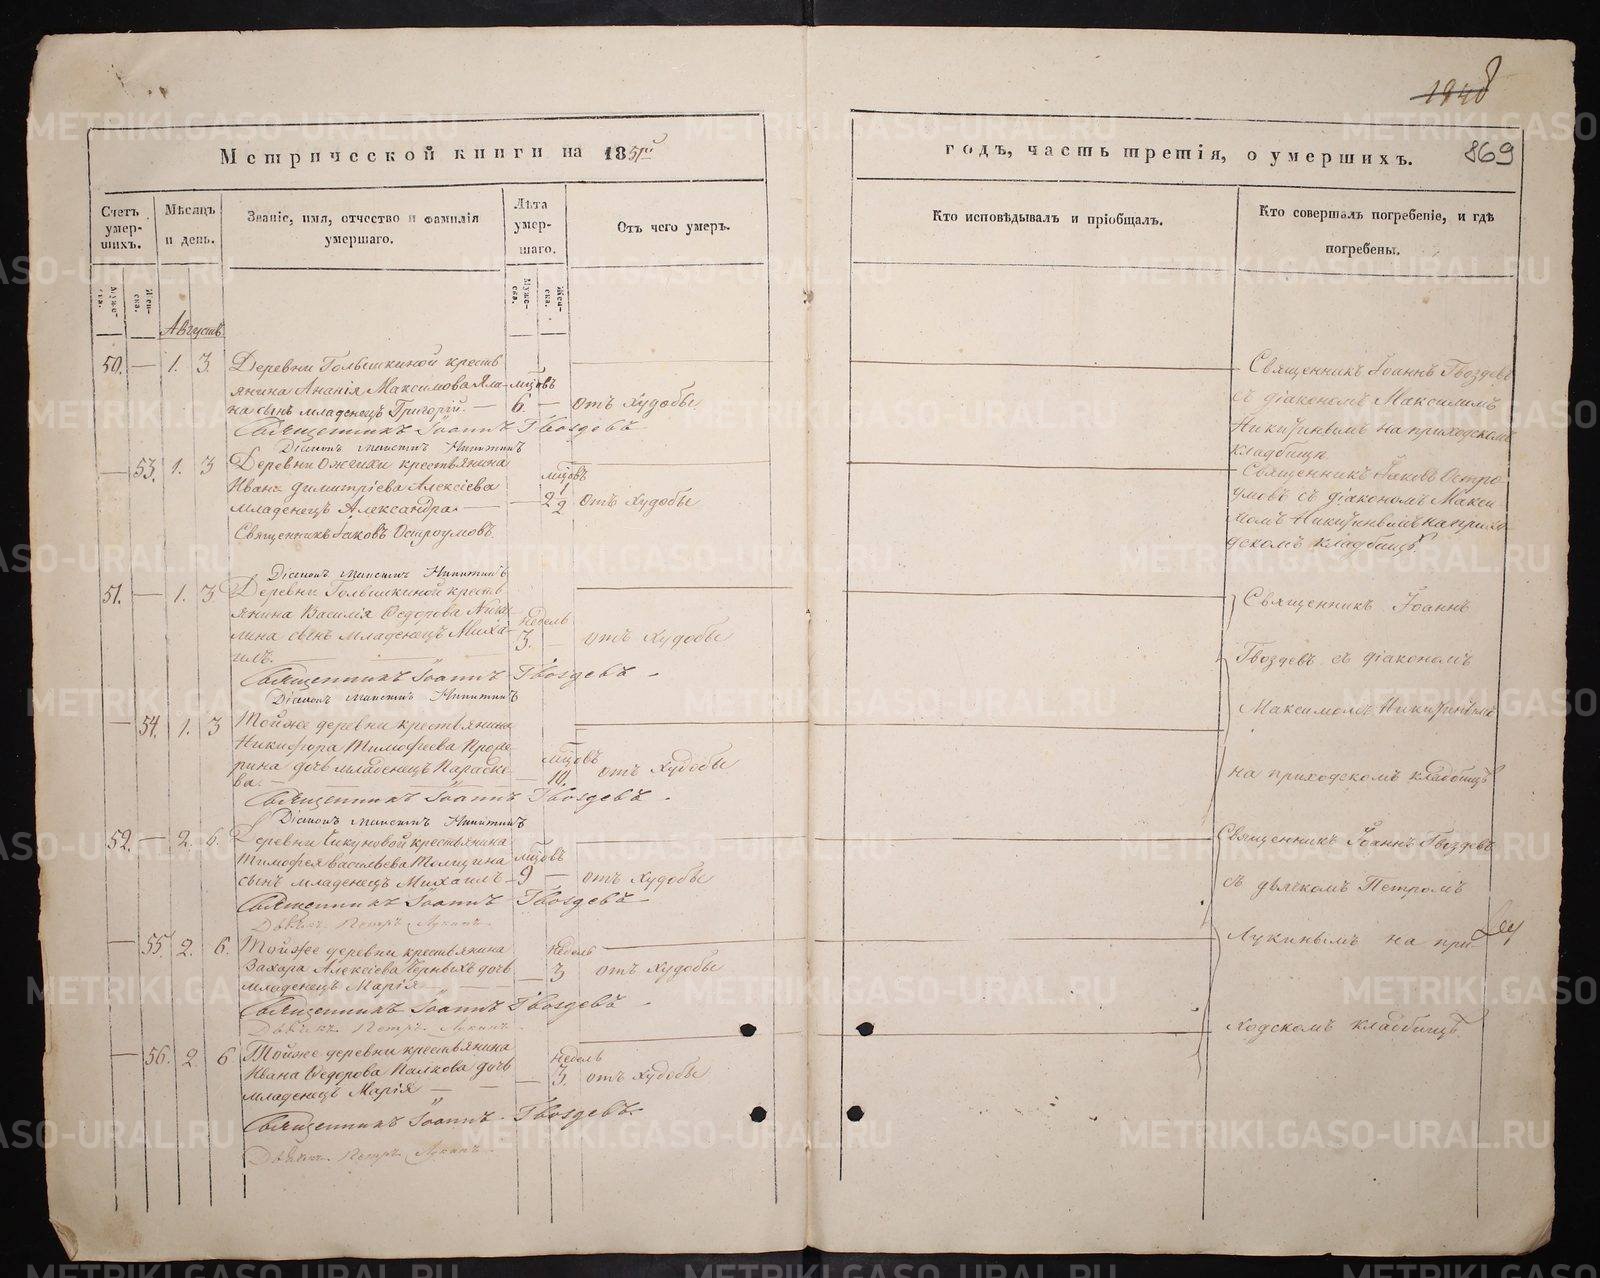 1848
869
Метрической книги на 1851й
годъ, часть третія, о умершихъ.
Счетъ умер-шихъ.
Мѣсяцъ и день.
Званіе, имя, отчество и фамилія умершаго.
Лѣта умер-шаго.
Отъ чего умеръ.
Кто исповѣдывалъ и пріобщалъ.
Кто совершалъ погребеніе, и гдѣ погребены.
Муже-ска.
Жен-ска.
Муже-ска.
Жен-ска.
Августъ
50. — 1. 3. Деревни Голышкиной кресть
янина Ананія Максимова Яла- мцовъ
на сынъ младенецъ Григорій. — 6. — Отъ худобы
Священникъ Іоаннъ Гвоздевъ
Діаконъ Максимъ Никитинъ
Священникъ Іоаннъ Гвоздевъ
съ діакономъ Максимомъ
Никитинымъ на приходскомъ
кладбищѣ
— 53. 1. 3 Деревни Ожгихи крестьянина
Ивана Димитріева Алексіева мцовъ
младенецъ Александра. — — 2 1/2 отъ худобы
Священникъ Іаковъ Остроумовъ.
Діаконъ Максимъ Никитинъ
Священникъ Іаковъ Остро-
умовъ съ діакономъ Макси
момъ Никитинымъ на прихо-
дскомъ кладбищѣ.
51. — 1. 3 Деревни Голышкиной кресть
янина Василія Ѳедорова
лина сынъ младенецъ Миха- недель
илъ. 3. — отъ худобы
Священникъ Іоаннъ Гвоздевъ
Діаконъ Максимъ Никитинъ
— 54. 1. 3 Тойже деревни крестьянина
Никифора Тимофеева
рина дочь младенецъ Параске- мцовъ
ва. — 10. отъ худобы
Священникъ Іоаннъ Гвоздевъ
Діаконъ Максимъ Никитинъ
Священникъ Іоаннъ
Гвоздевъ съ діакономъ
Максимомъ Никитинымъ
на приходскомъ кладбищѣ
52. — 2. 6. Деревни Чикуновой крестьянина
Тимофея Васильева Толщина мцовъ
сынъ младенецъ Михаилъ — 9 — отъ худобы
Священникъ Іоаннъ Гвоздевъ
Дьячекъ Петръ Лукинъ
— 55. 2. 6. Тойже деревни крестьянина недель
Захара Алексіева Черныхъ дочь
младенецъ Марія — 3 отъ худобы
Священникъ Іоаннъ Гвоздевъ
Дьячекъ Петръ Лукинъ
— 56. 2. 6. Тойже деревни крестьянина недель
Ивана Ѳедорова Палкова дочь
младенецъ Марія — — 3. отъ худобы
Священникъ Іоаннъ Гвоздевъ.
Дьячекъ Петръ Лукинъ
Священникъ Іоаннъ Гвоздевъ
съ дьячкомъ Петромъ
Лукинымъ на при-
ходскомъ кладбищѣ
METRIKI.GASO-URAL.RU